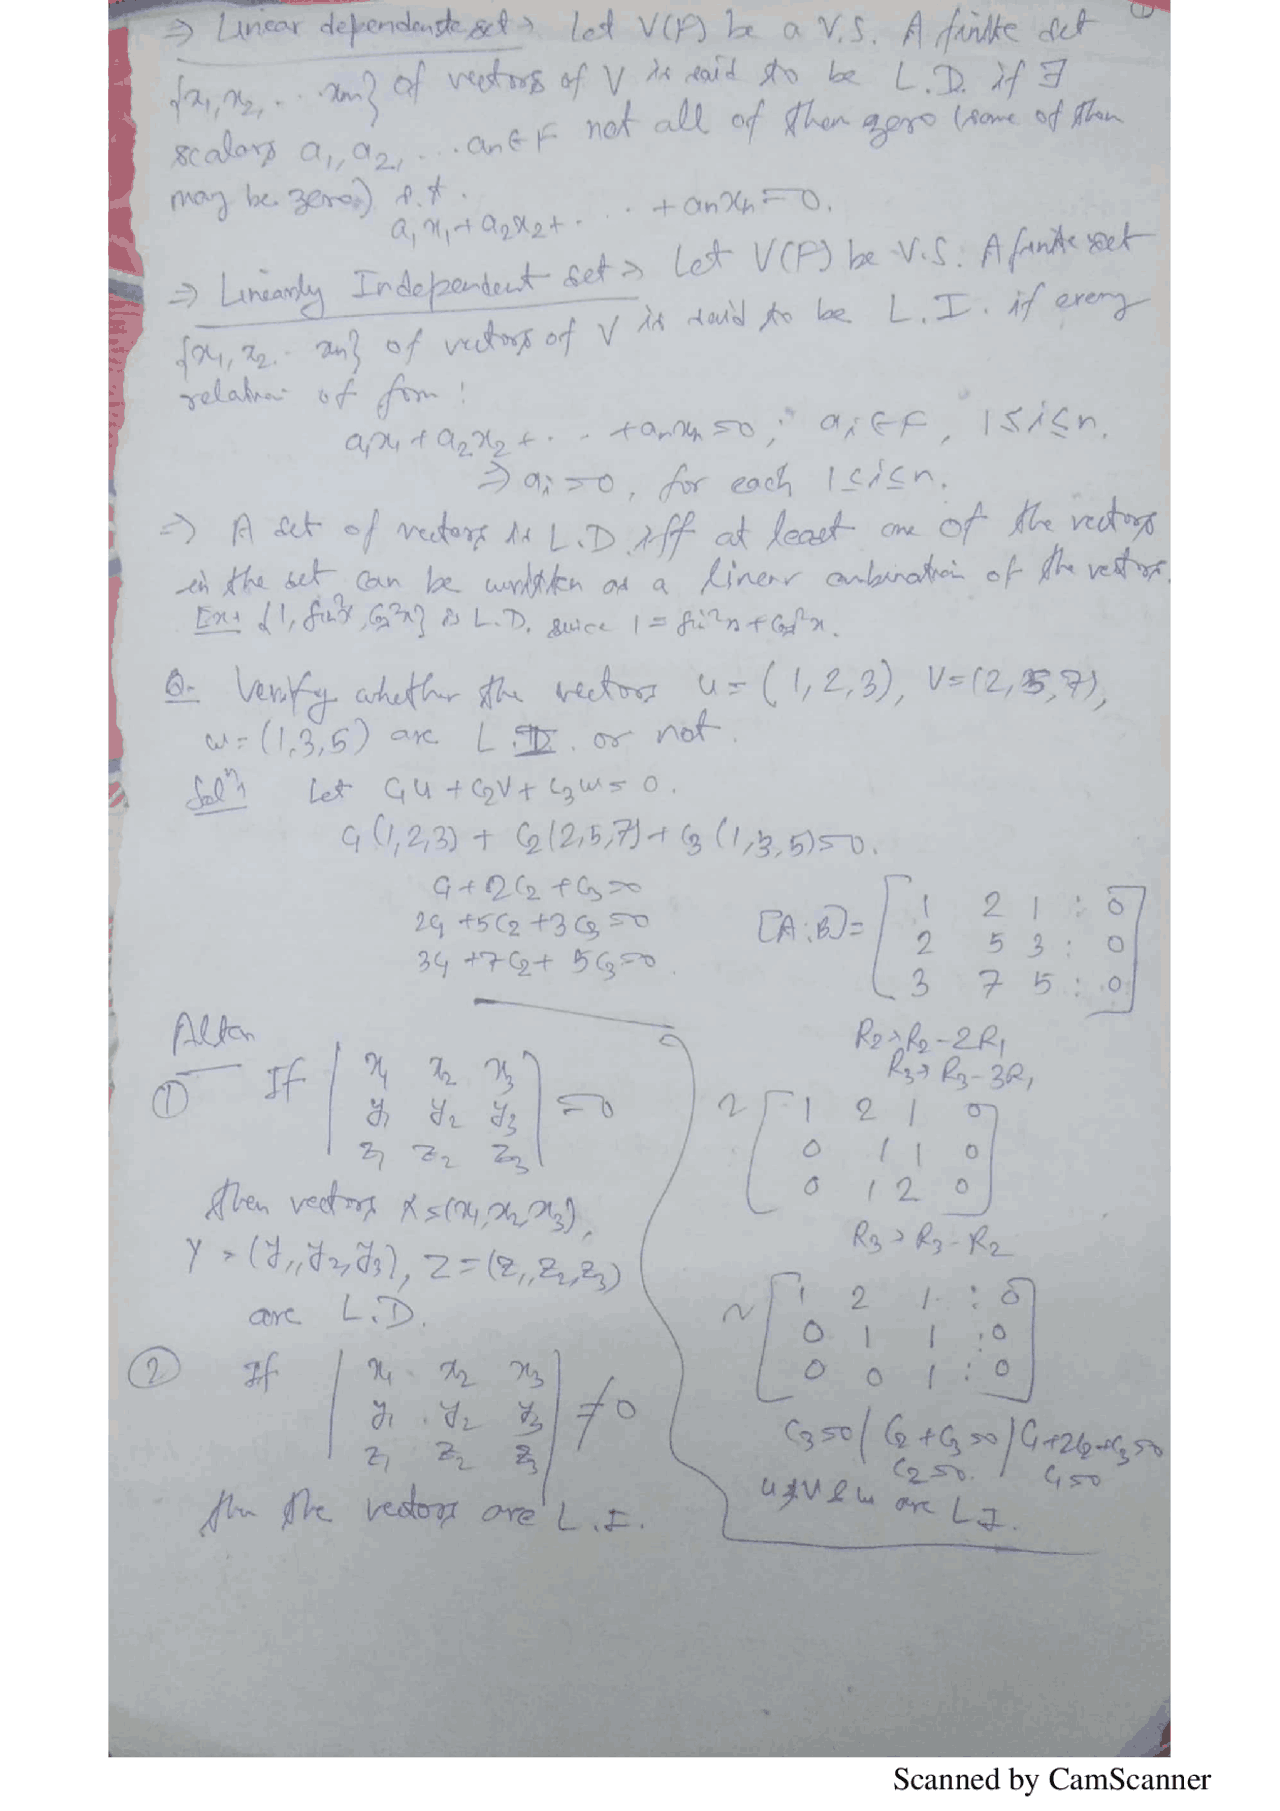 ①
⇒ Linear dependente set → Let V(F) be a V.S. A finite set
{x₁, x₂, ... xₙ} of vectors of V is said to be L.D. if ∃
scalars a₁, a₂, ... aₙ ∈ F not all of them zero (some of them
may be zero) s.t.
a₁x₁ + a₂x₂ + ... + aₙxₙ = 0.
⇒ Linearly Independent set → Let V(F) be V.S. A finite set
{x₁, x₂ .. xₙ} of vectors of V is said to be L.I. if every
relation of form:
a₁x₁ + a₂x₂ + ... + aₙxₙ = 0; aᵢ ∈ F, 1 ≤ i ≤ n.
⇒ aᵢ = 0, for each 1 ≤ i ≤ n.
⇒ A set of vectors is L.D. iff at least one of the vectors
in the set can be written as a linear combination of the vectors.
Ex: {1, sin²x, cos²x} is L.D. since 1 = sin²x + cos²x.
Q. Verify whether the vectors u = (1, 2, 3), V = (2, 5, 7),
w = (1, 3, 5) are L.I. or not.
Solⁿ Let c₁u + c₂v + c₃w = 0.
c₁(1,2,3) + c₂(2,5,7) + c₃(1,3,5) = 0.
c₁ + 2c₂ + c₃ = 0
2c₁ + 5c₂ + 3c₃ = 0
3c₁ + 7c₂ + 5c₃ = 0
[A:B] = [ 1 2 1 : 0
2 5 3 : 0
3 7 5 : 0 ]
R₂ → R₂ - 2R₁
R₃ → R₃ - 3R₁
~ [ 1 2 1 0
0 1 1 0
0 1 2 0 ]
R₃ → R₃ - R₂
~ [ 1 2 1 : 0
0 1 1 : 0
0 0 1 : 0 ]
c₃ = 0 / c₂ + c₃ = 0 / c₁ + 2c₂ + c₃ = 0
c₂ = 0. c₁ = 0
u, v & w are L.I.
Alter
① If | x₁ x₂ x₃
y₁ y₂ y₃
z₁ z₂ z₃ | = 0
then vectors X = (x₁, x₂, x₃),
Y = (y₁, y₂, y₃), Z = (z₁, z₂, z₃)
are L.D.
② If | x₁ x₂ x₃
y₁ y₂ y₃
z₁ z₂ z₃ | ≠ 0
then the vectors are L.I.
Scanned by CamScanner